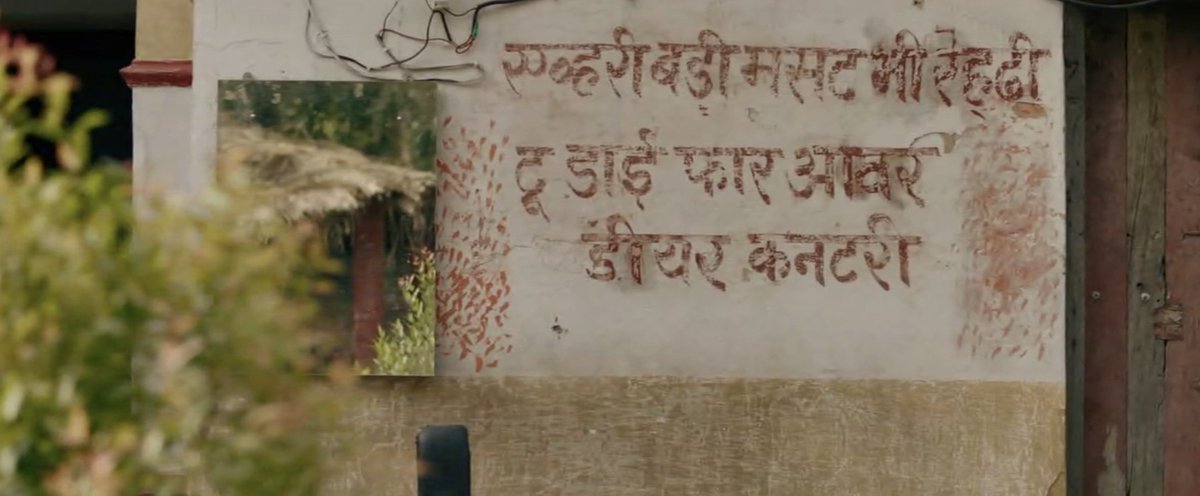 एव्हरी बड़ी मसट भी रेड्ढी
टू डाई फार आवर
डीयर कनटरी